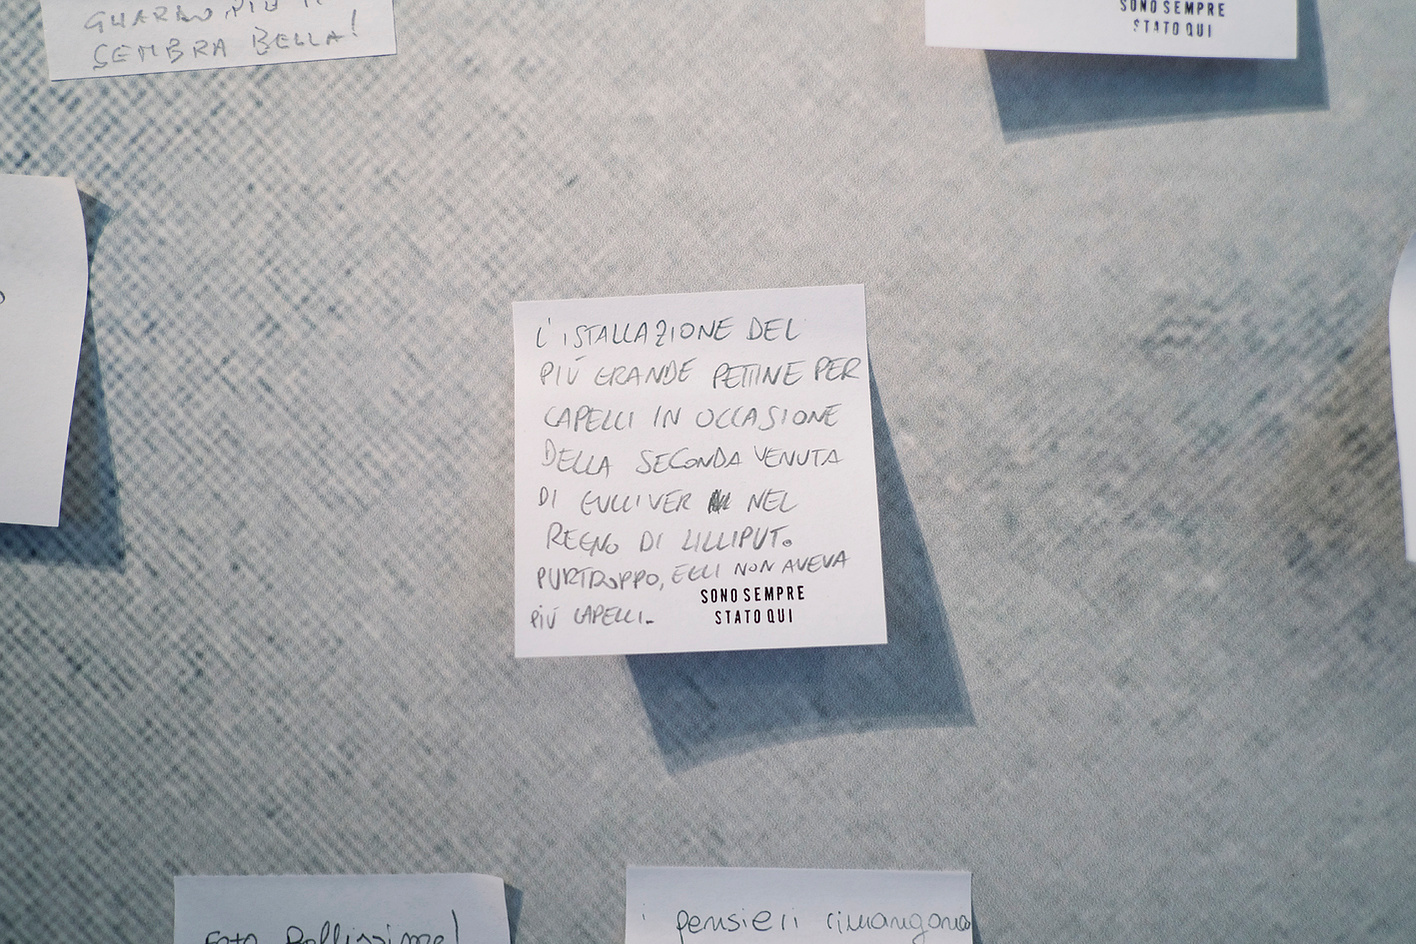 SEMBRA BELLA!
SONO SEMPRE
STATO QUI
L'ISTALLAZIONE DEL
PIÚ GRANDE PETTINE PER
CAPELLI IN OCCASIONE
DELLA SECONDA VENUTA
DI GULLIVER NEL
REGNO DI LILLIPUT.
PURTROPPO, EGLI NON AVEVA
PIÚ CAPELLI.
SONO SEMPRE
STATO QUI
Foto Bellissime!
i pensieri rimangono